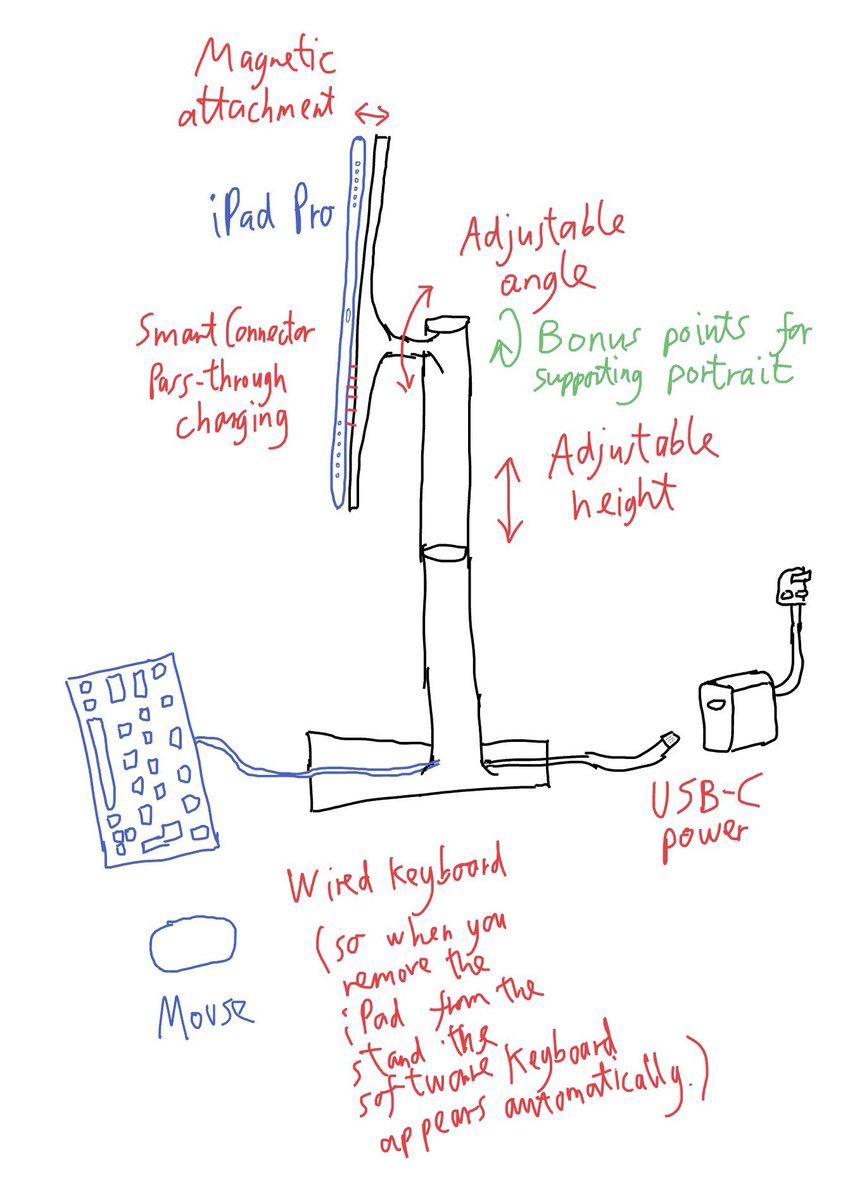 Magnetic
attachment
iPad Pro
Adjustable
angle
Bonus points for
supporting portrait
Smart Connector
Pass-through
charging
Adjustable
height
USB-C
power
Wired keyboard
(so when you
remove the
iPad from the
stand the
software keyboard
appears automatically.)
Mouse